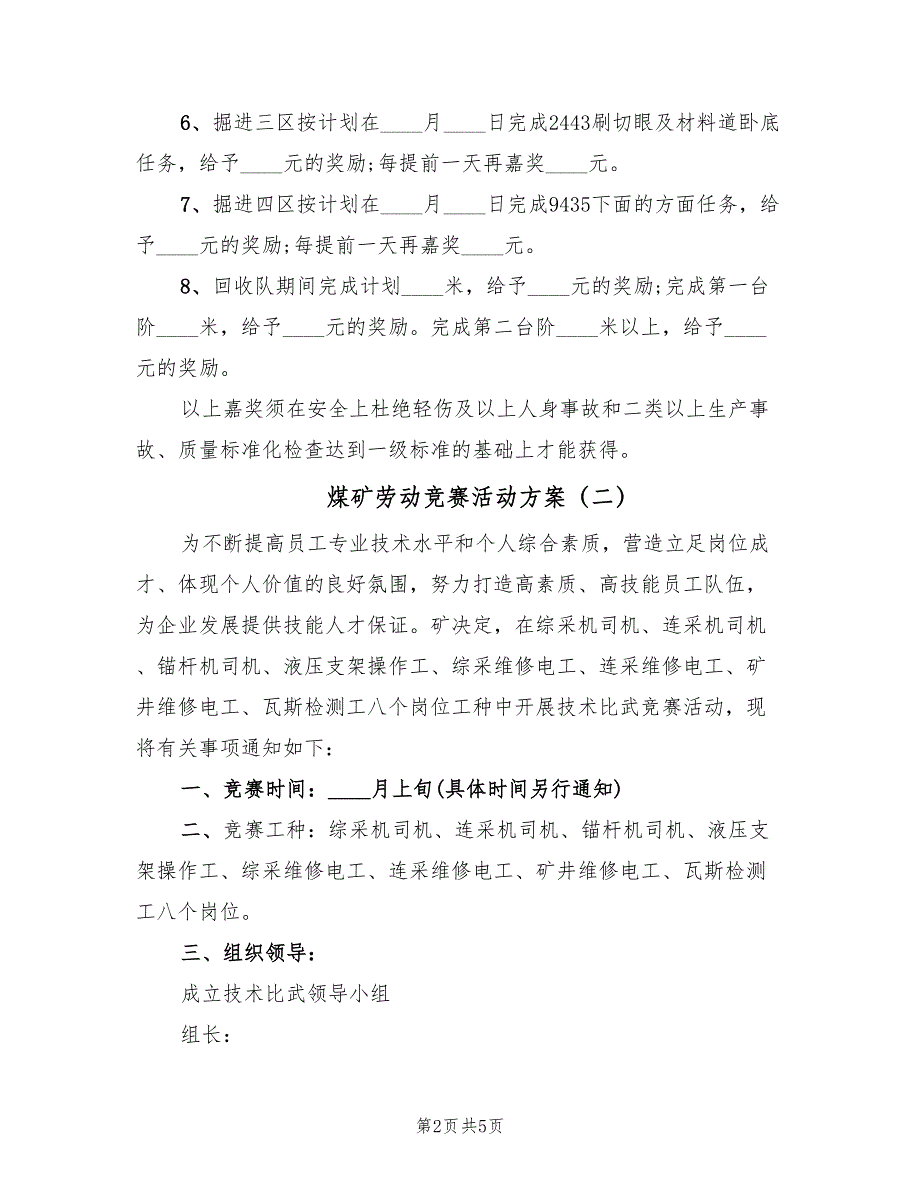 6、掘进三区按计划在____月____日完成2443刷切眼及材料道卧底
任务，给予____元的奖励;每提前一天再嘉奖____元。
7、掘进四区按计划在____月____日完成9435下面的方面任务，给
予____元的奖励;每提前一天再嘉奖____元。
8、回收队期间完成计划____米，给予____元的奖励;完成第一台
阶____米，给予____元的奖励。完成第二台阶____米以上，给予____
元的奖励。
以上嘉奖须在安全上杜绝轻伤及以上人身事故和二类以上生产事
故、质量标准化检查达到一级标准的基础上才能获得。
煤矿劳动竞赛活动方案（二）
为不断提高员工专业技术水平和个人综合素质，营造立足岗位成
才、体现个人价值的良好氛围，努力打造高素质、高技能员工队伍，
为企业发展提供技能人才保证。矿决定，在综采机司机、连采机司机
、锚杆机司机、液压支架操作工、综采维修电工、连采维修电工、矿
井维修电工、瓦斯检测工八个岗位工种中开展技术比武竞赛活动，现
将有关事项通知如下：
一、竞赛时间：____月上旬(具体时间另行通知)
二、竞赛工种：综采机司机、连采机司机、锚杆机司机、液压支
架操作工、综采维修电工、连采维修电工、矿井维修电工、瓦斯检测
工八个岗位。
三、组织领导：
成立技术比武领导小组
组长：
第2页共5页